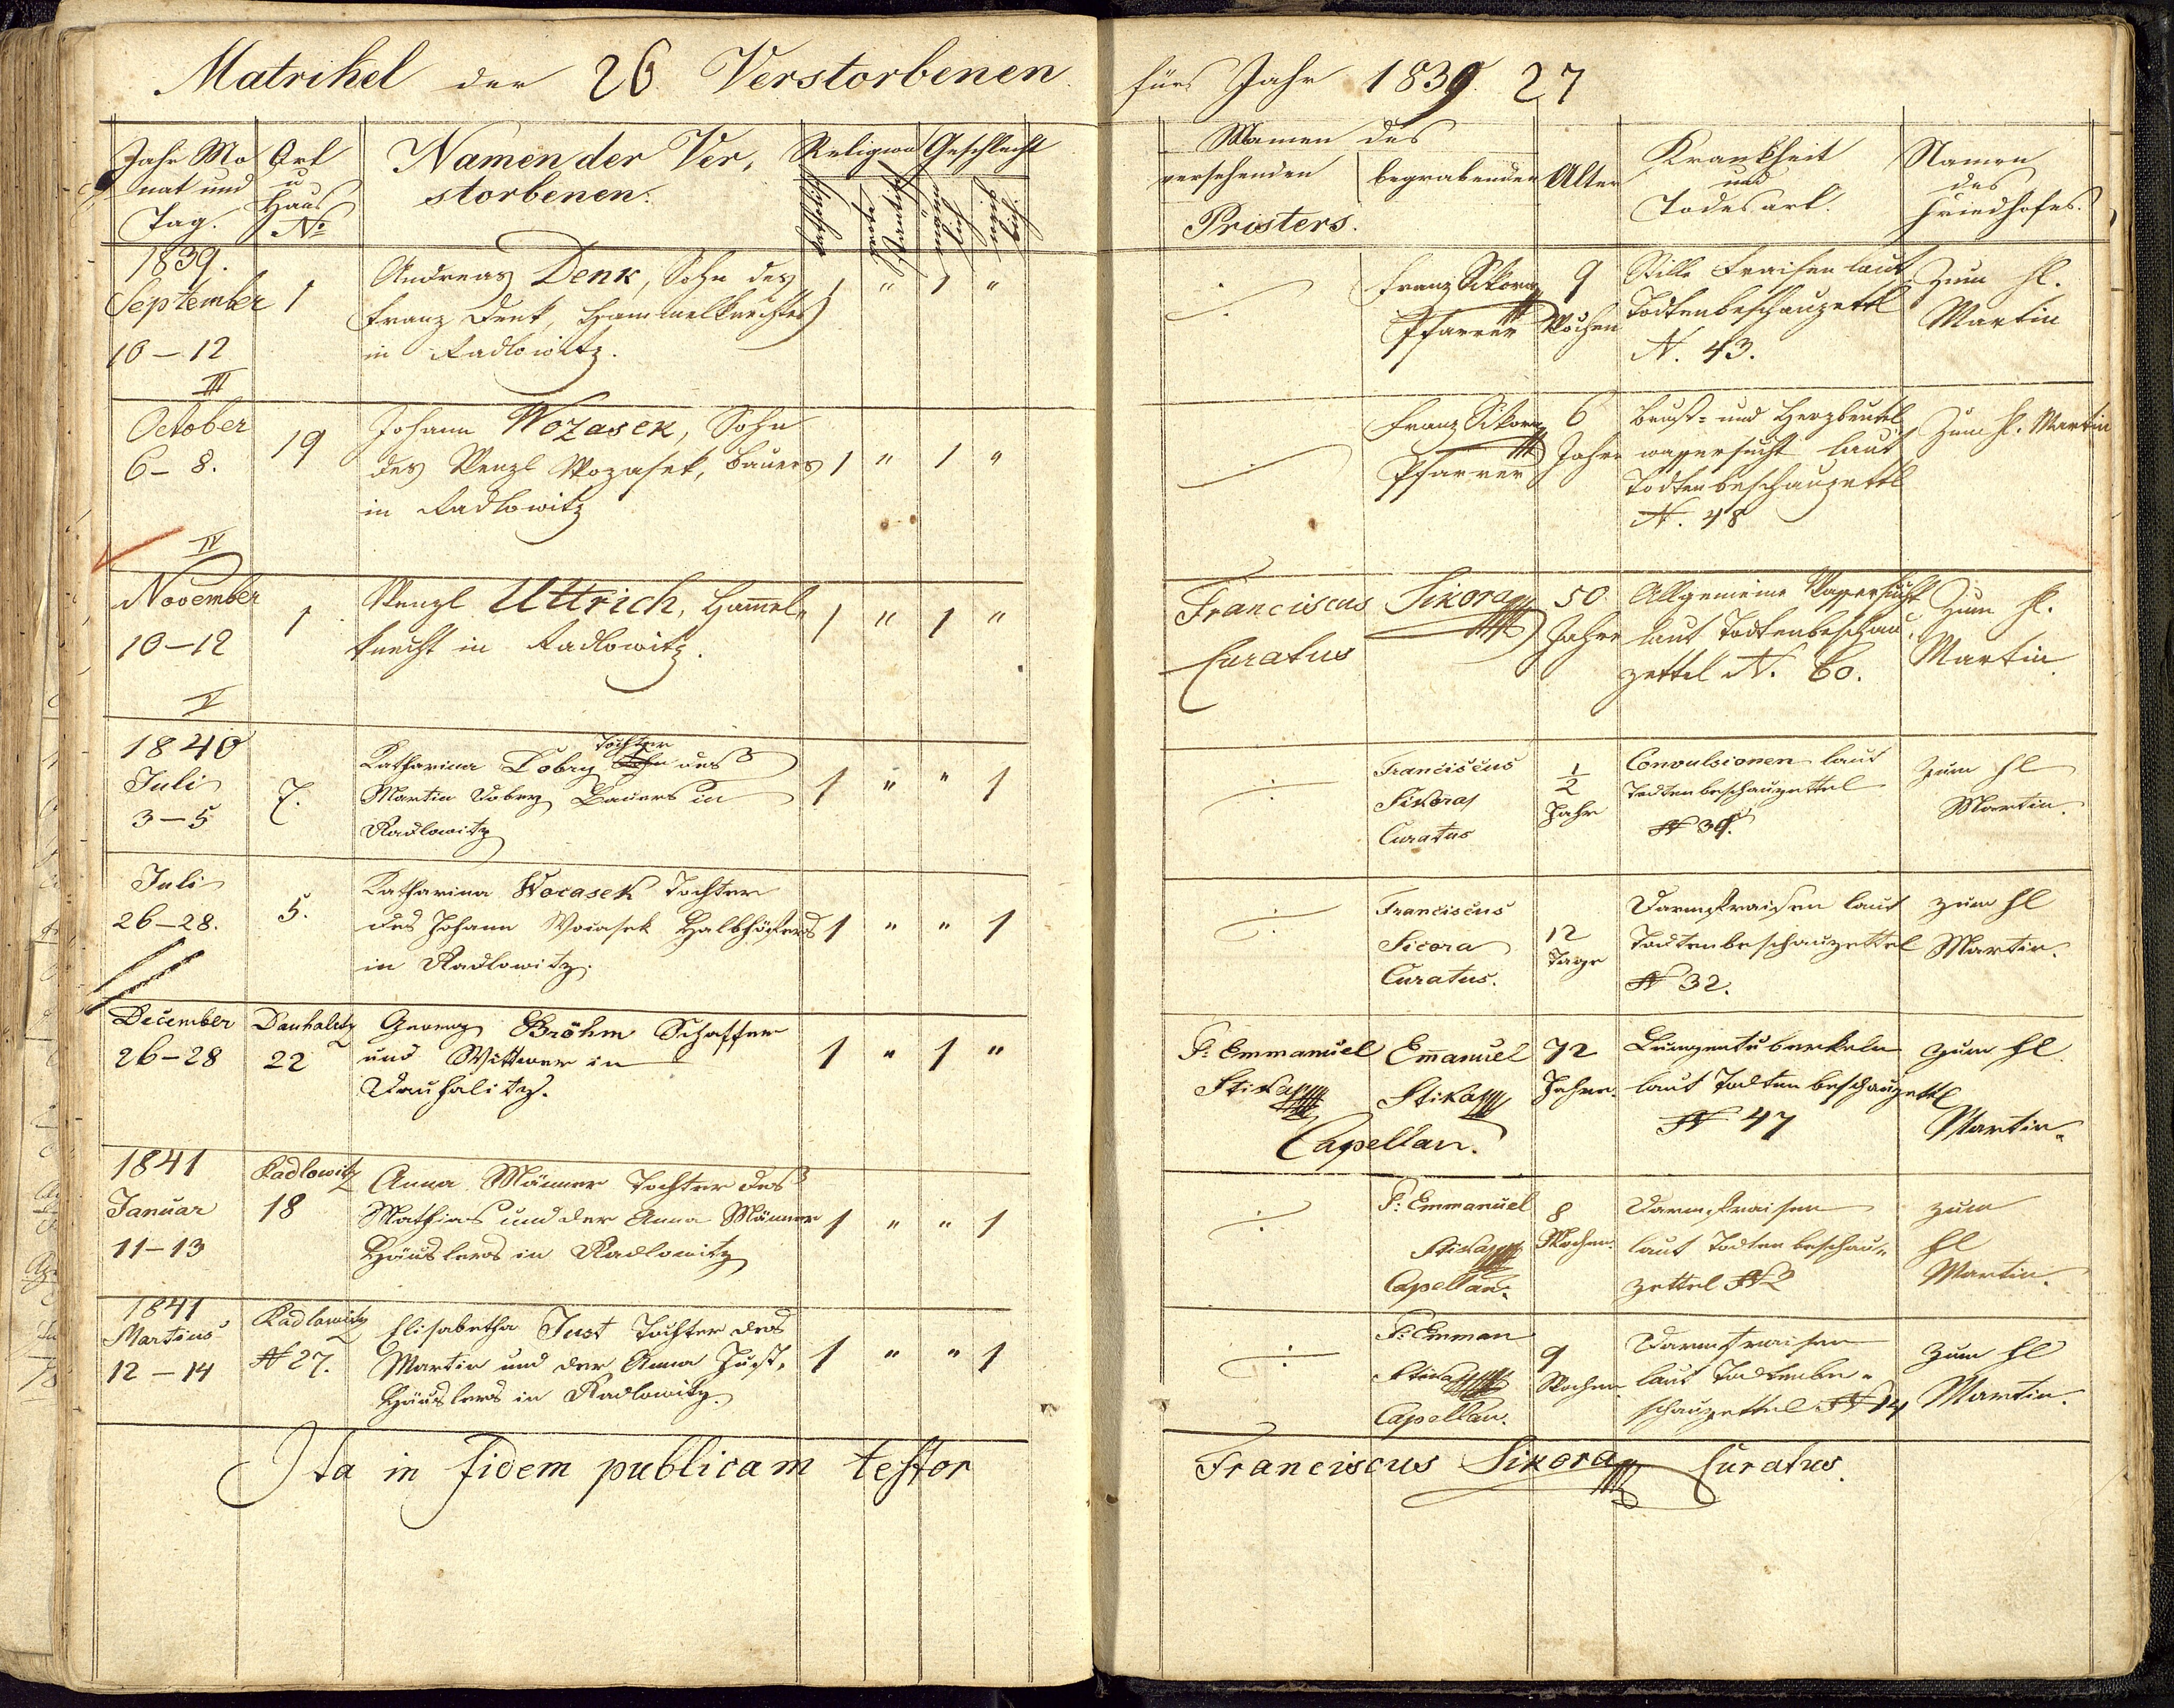 Matrikel der 26 Verstorbenen
fürs Jahr 1839. 27
Jahr Mo
nat und
Tag.
Ort
u
Haus
No
Namen der Ver,
storbenen.
Religion
katholisch
protestantisch
Geschlecht
männ
lich
weib
lich.
Namen des
versehenden
begrabenden
Pristers.
Alter
Krankheit
und
Todesart.
Namen
des
Friedhofes.
1839.
September
10-12
III
1
Andreas Denk, Sohn des
Franz Denk, Hammelknechtes
in Radlowitz.
1 " 1 "
Franz Sikora
Pfarrer
9
Wochen
Stille Fraisen laut
Todtenbeschauzettl
N. 43.
Zum hl.
Martin
October
6-8.
IV
19
Johann Wozasek, Sohn
des Wenzl Wozasek, Bauers
in Radlowitz
1 " 1 "
Franz Sikora
Pfarrer
6
Jahre
Brust- und Herzbeutel
wassersucht laut
Todtenbeschauzettl
N. 48
Zum hl. Martin
November
10-12
V
1
Wenzl Uttrich, Hammel,
knecht in Radlowitz.
1 " 1 "
Franciscus Sikora
Curatus
50
Jahre
Allgemeine Wassersucht
laut Todtenbeschau,
zettel N. 60.
Zum hl.
Martin
1840
Juli
3-5
7.
Tochter
Katharina Dobry Sohn des
Martin Dobry Bauers in
Radlowitz
1 " " 1
Franciscus
Sikora
Curatus
1/2
Jahr
Convulsionen laut
Todtenbeschauzettel
N 30.
Zum hl
Martin.
Juli
26-28.
5.
Katharina Wocasek Tochter
des Johann Wocasek Halbhöfters
in Radlowitz.
1 " " 1
Franciscus
Sicora
Curatus.
12
Tage
Darmfraisen laut
Todtenbeschauzettel
N 32.
zum hl
Martin.
December
26-28
Dauhalitz
22
Georg Bröhm Schaffer
und Wittwer in
Dauhalitz.
1 " 1 "
P: Emmanuel
Stika
Emanuel
Stika
Capellan.
72
Jahre.
Lungentuberkeln
laut Todtenbeschauzettl
N 47
zum hl
Martin.
1841
Januar
11-13
Radlowitz
18
Anna Männer Tochter des
Mathias und der Anna Männer
Häuslers in Radlowitz
1 " " 1
P: Emmanuel
Stika
Capellan.
8
Wochen.
Darmfraisen
laut Todtenbeschau-
zettel N 2
zum
hl
Martin.
1841
Martius
12-14
Radlowitz
N 27.
Elisabetha Just Tochter des
Martin und der Anna Just,
Häuslers in Radlowitz.
1 " " 1
P: Emman
Stika
Capellan.
9
Wochen
Darmfraisen
laut Todtenbe-
schauzettel N 14
Zum hl
Martin.
Ita in fidem publicam testor
Franciscus Sikora Curatus.